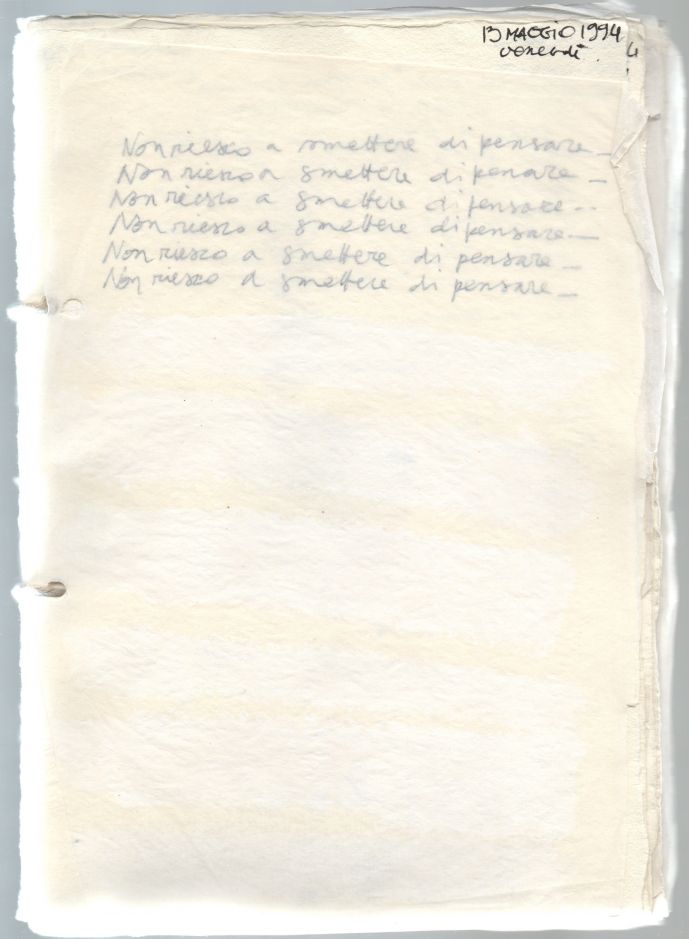 13 MAGGIO 1994
venerdì
Non riesco a smettere di pensare_
Non riesco a smettere di pensare_
Non riesco a smettere di pensare_
Non riesco a smettere di pensare_
Non riesco a smettere di pensare_
Non riesco a smettere di pensare_